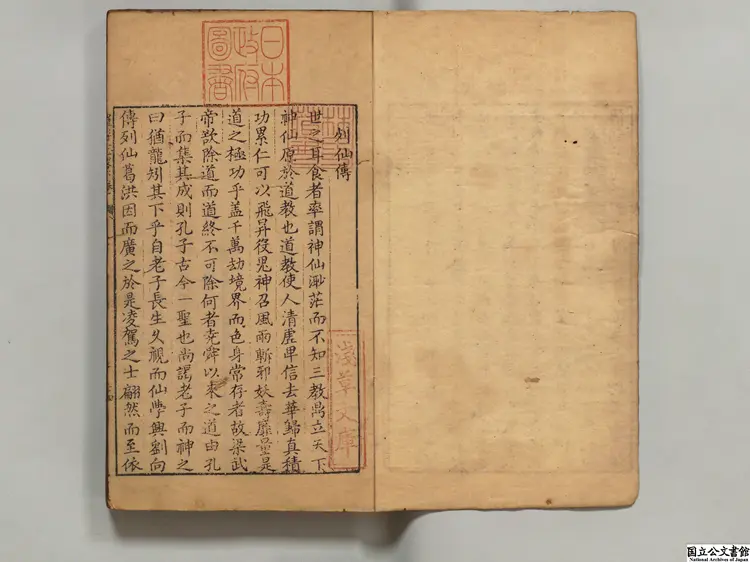 列仙傳
世之耳食者率謂神仙渺茫而不知三教鼎立天下
神仙原於道教也道教使人清虛卑信去華歸真積
功累仁可以飛昇役鬼神召風雨斬邪妖壽靡量是
道之極功乎蓋千萬劫境界而色身常存者故梁武
帝欲除道而道終不可除何者堯舜以來之道由孔
子而集其成則孔子古今一聖也尚謁老子而神之
曰猶龍矧其下乎自老子長生久視而仙學興劉向
傳列仙葛洪因而廣之於是凌駕之士翩然而至依
日本
政府
圖書
淺草文庫
国立公文書館
National Archives of Japan